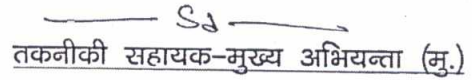 Sd
तकनीकी सहायक-मुख्य अभियन्ता (मु.)